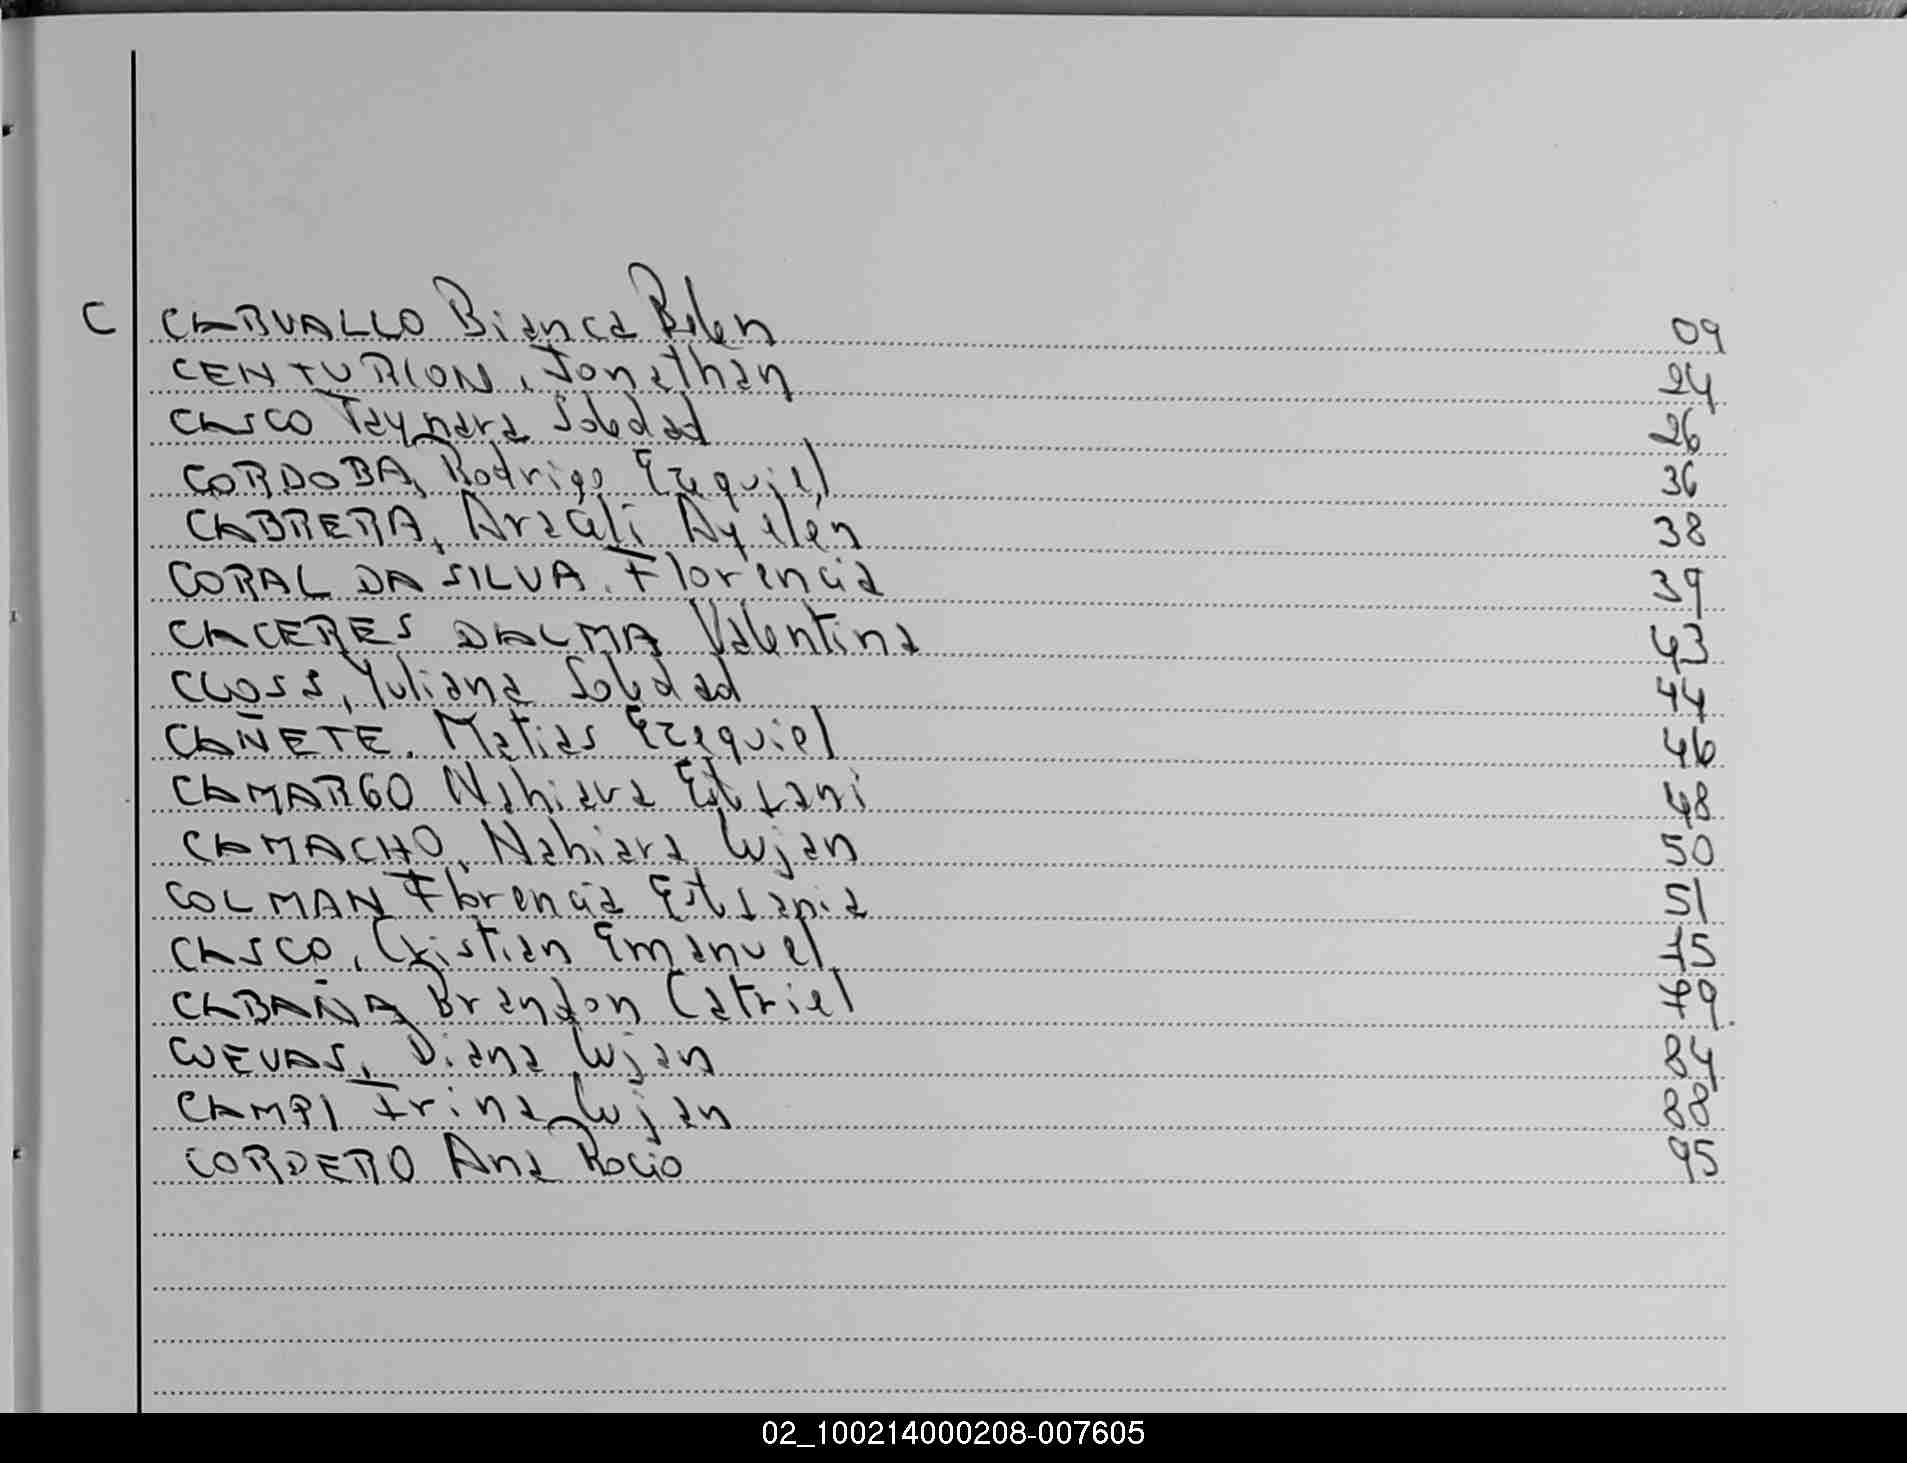 C CARVALLO Bianca Belen 09
CENTURION, Jonathan 24
CASCO Taynara Soledad 26
CORDOBA, Rodrigo Ezequiel 36
CABRERA, Aracali Ayelén 38
CORAL DA SILVA, Florencia 39
CACERES DALMA Valentina 43
CLOSS, Yuliana Soledad 44
CAÑETE, Matias Ezequiel 46
CAMARGO Nahiara Estefani 48
CAMACHO, Nahiara Lujan 50
COLMAN Florencia Estefania 51
CASCO, Cristian Emanuel 75
CABAÑA Brandon Catriel 79
CUEVAS, Diana Lujan 84
CAMPI Irina Lujan 88
CORDERO Ana Rocio 95
02_100214000208-007605